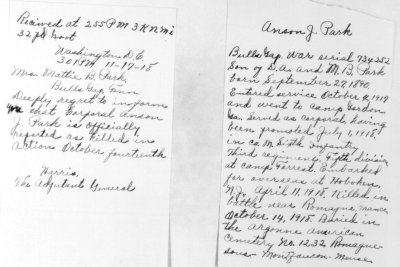 Received at 255 PM 3 K N Mi
32 pd Govt
Washington D.C.
301 PM 11-17-18
Mrs. Mattie B. Park,
Bulls Gap Tenn
Deeply regret to inform
you that Corporal Anson
J. Park is officially
reported as killed in
action October fourteenth
Harris.
The Adjutant General
Anson J. Park
Bulls Gap. War serial 734.252
Son of D.A. and M. B. Park
born September 27, 1890.
Entered service October 9, 1917
and went to Camp Gordon
Ga. Served as corporal, having
been promoted July 1, 1918.
in Co. M. Sixth Infantry
Third regiment. Fifth division
at Camp Forrest. Embarked
for overseas at Hoboken,
N.J. April 11, 1918. Killed in
battle near Romagne, France,
October 14, 1918. Buried in
the Argonne American
Cemetery No. 1232 Romagne-
sous-Montfaucon-Meuse